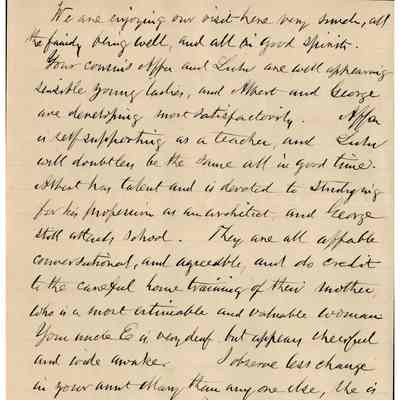 We are enjoying our visit here very much, all
the family being well, and all in good spirits.
Your cousins Affa and Lulu are well appearing
sensible young ladies, and Albert and George
are developing most satisfactorily. Affa
is self supporting as a teacher, and Lulu
will doubtless be the same all in good time.
Albert has talent and is devoted to studying
for his profession as an architect, and George
still attends school. They are all affable
conversational, and agreeable, and do credit
to the careful home training of their mother,
who is a most estimable and valuable woman
Your uncle E is very deaf but appears cheerful
and wide awake. I observe less change
in your aunt Mary than any one else, she is